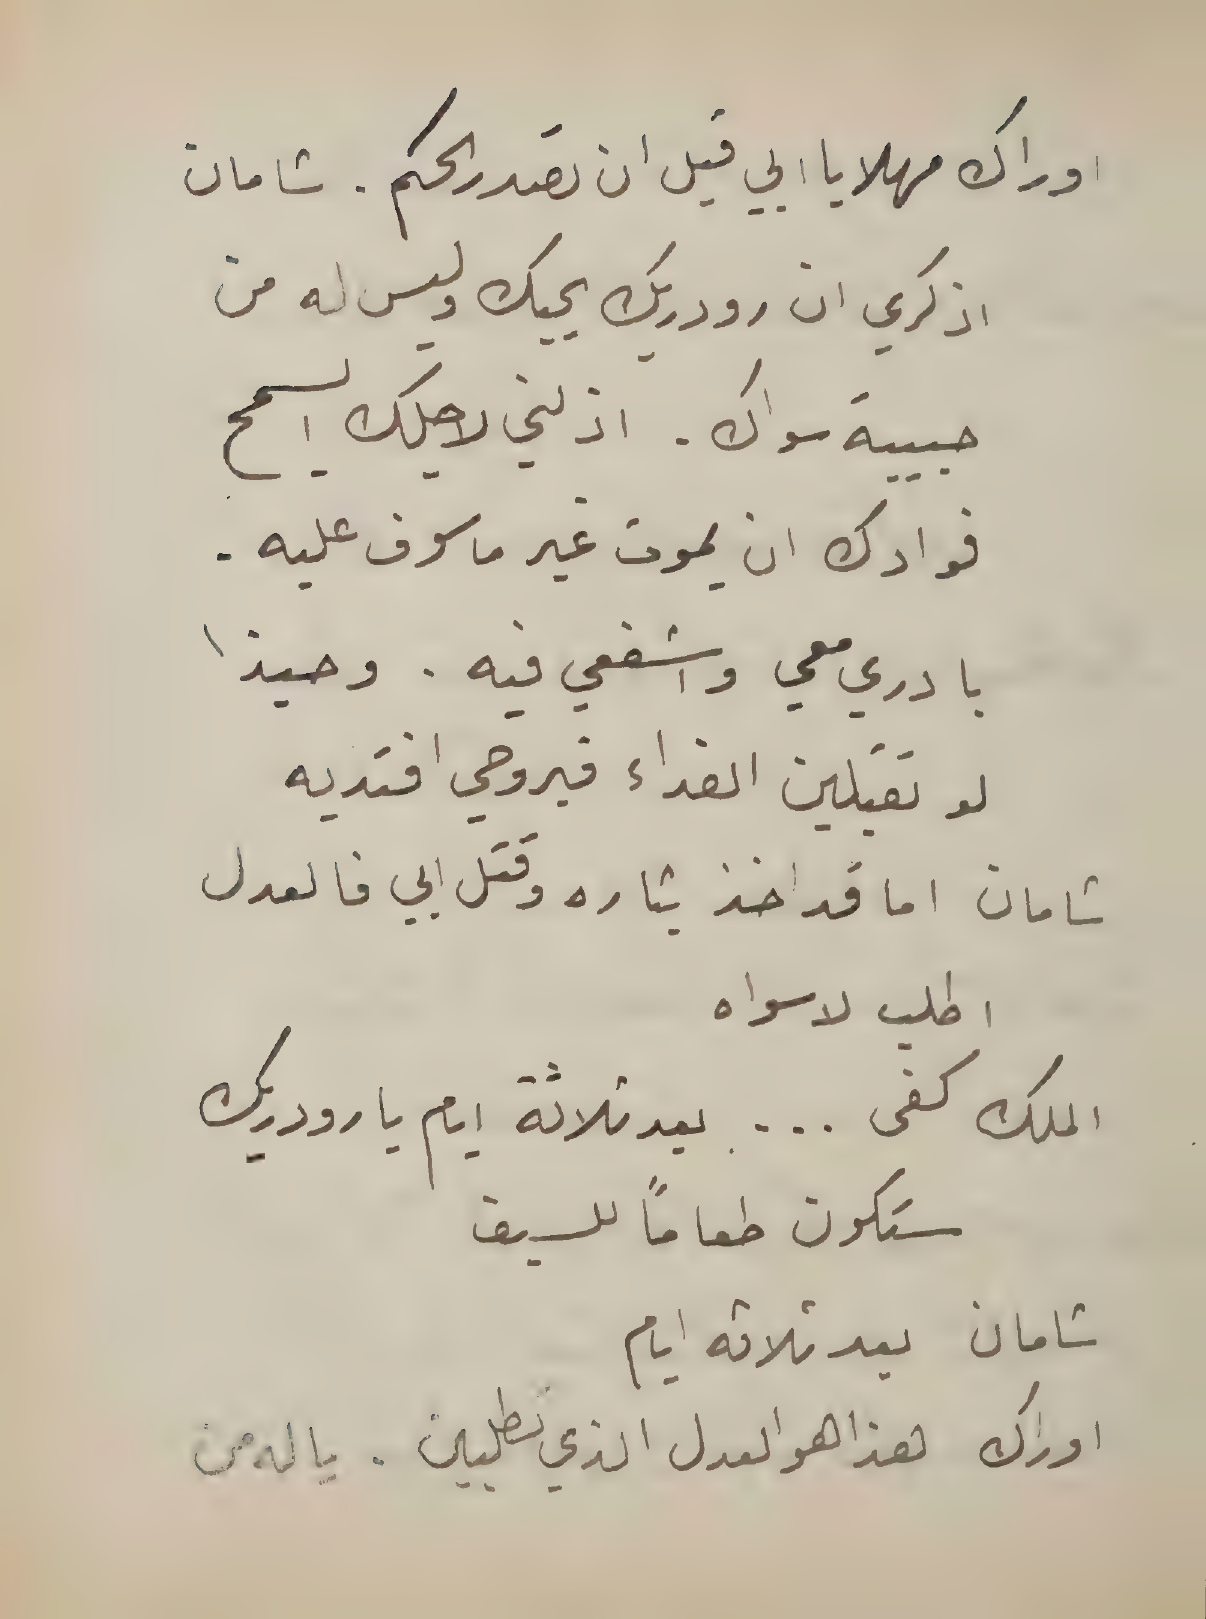 اوراك مهلا يا ابي قبل ان تصدر الحكم . شامان
اذكري ان رودريك يحبك وليس له من
حبيبة سواك . اذ لني لاجلك ايسمح
فوادك ان يموت غير ماسوف عليه .
بادري معي واشفعي فيه . وحبذا
لو تقبلين الفداء فبروحي افتديه
شامان اما قد اخذ بثاره وقتل ابي فالعدل
اطلب لا سواه
الملك كفى ... بعد ثلاثة ايام يا رودريك
ستكون طعاماً للسيف
شامان بعد ثلاثه ايام
اوراك هذا هو العدل الذي تطلبين . يا له من